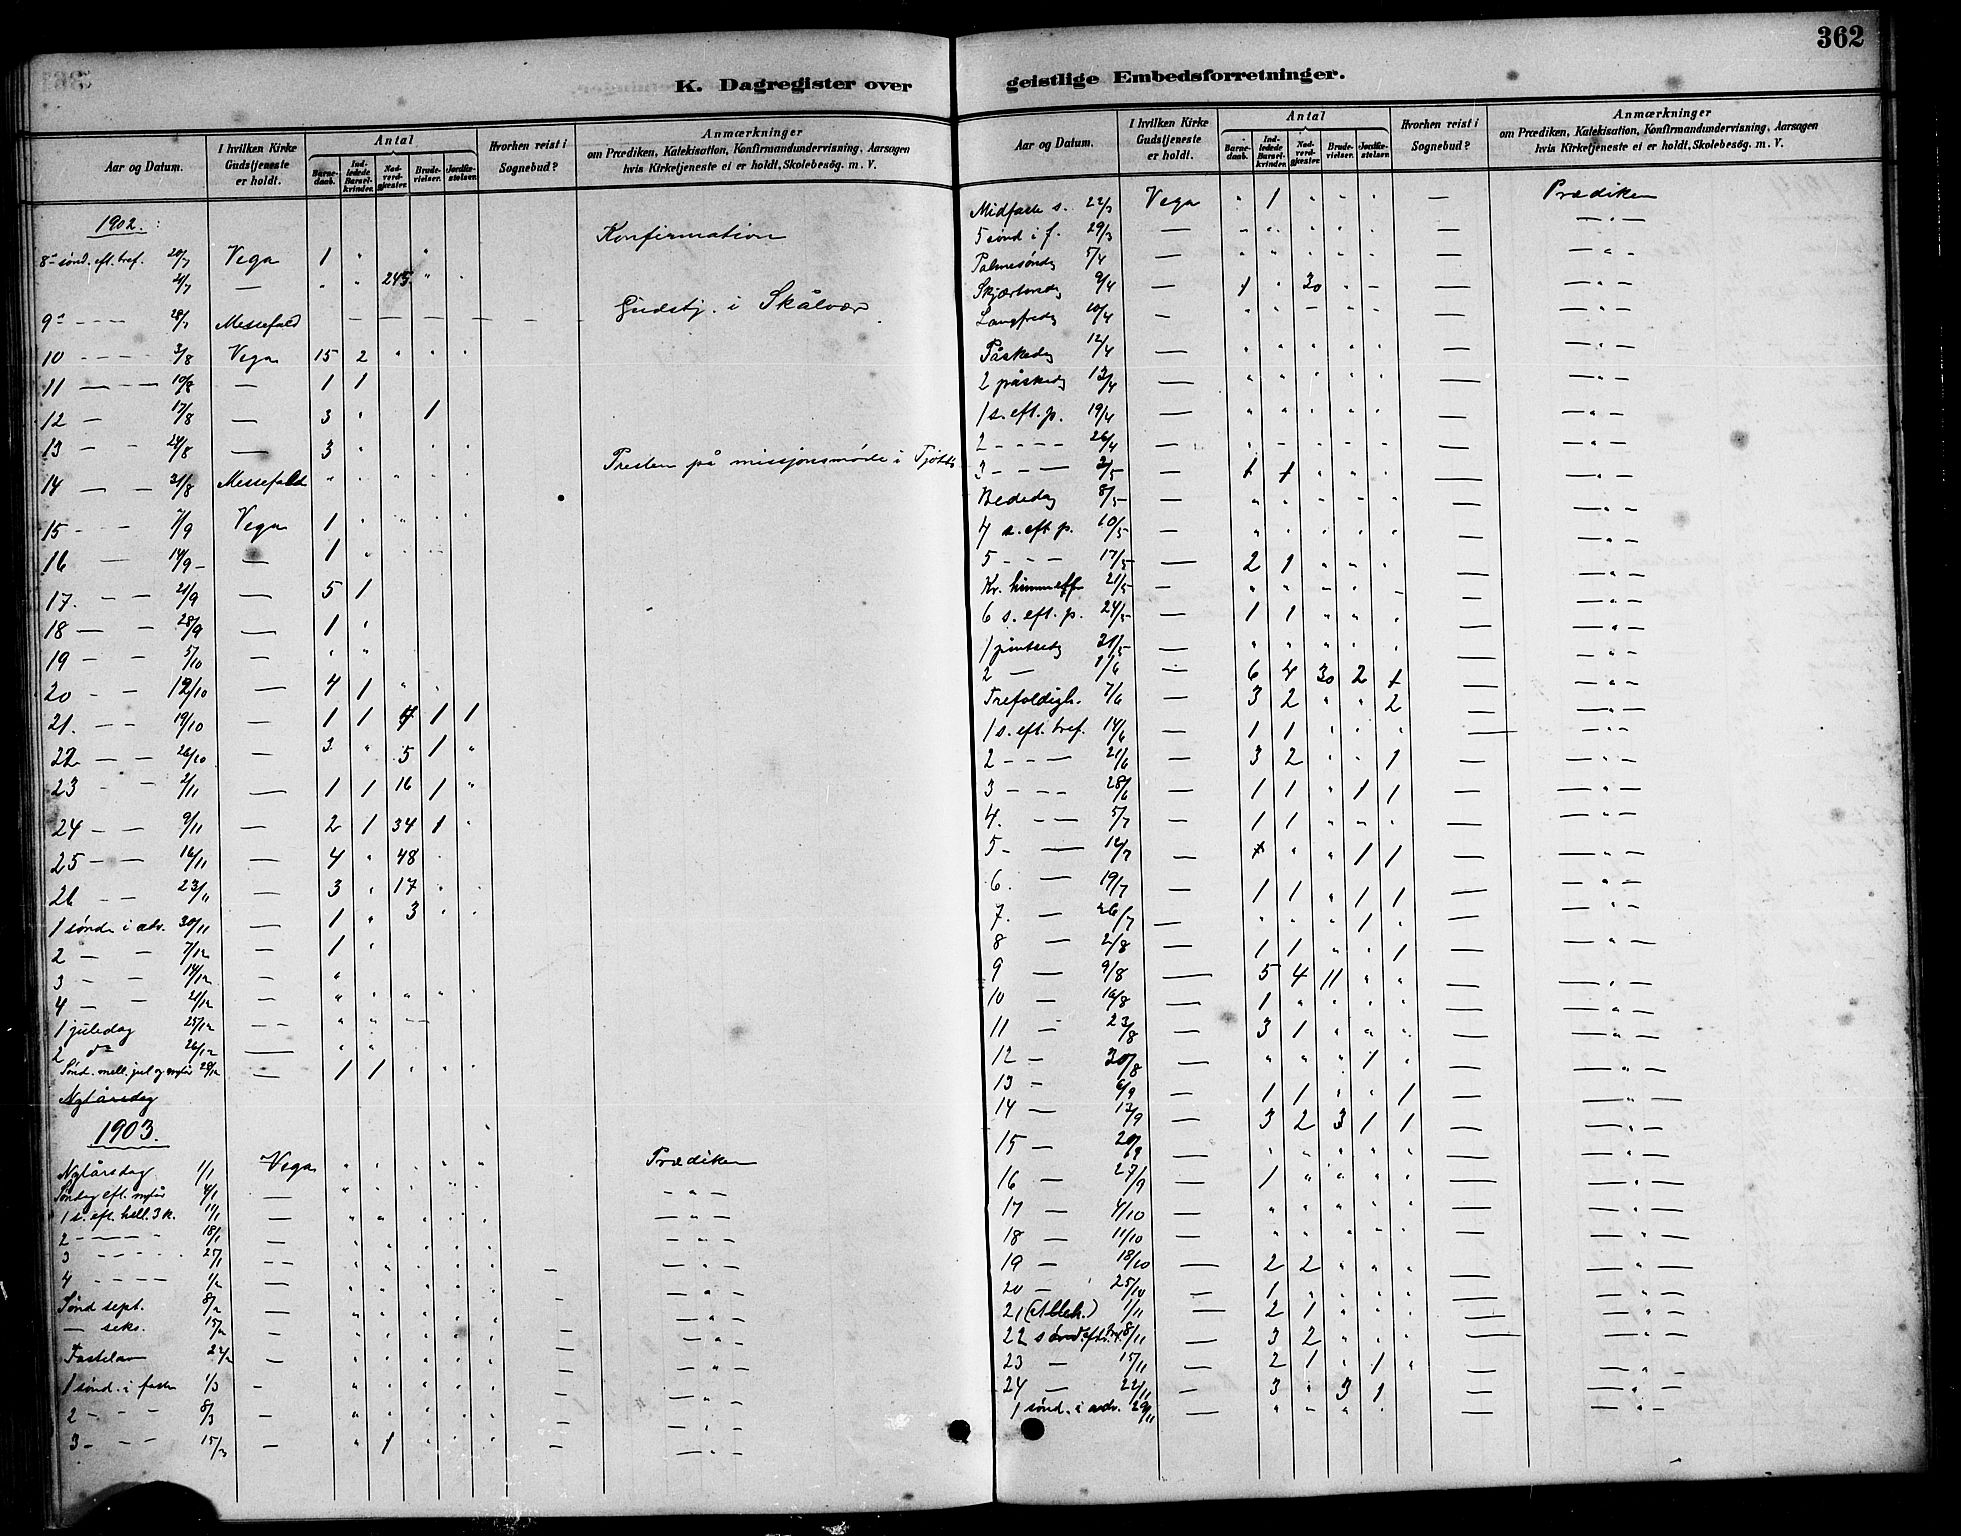 362
K. Dagregister over
Aar og Datum. I hvilken Kirke Gudstjeneste er holdt. Antal Barnedaab. Indledede Barselkvinder. Nadverdgjester. Brudevielser. Jordfæstelser. Hvorhen reist i Sognebud? Anmærkninger om Prædiken, Katekisation, Konfirmandundervisning, Aarsagen hvis Kirketjeneste ei er holdt, Skolebesög. m. V.
1902.
8de sönd. eft. tref. 20/7 Vega 1 " " Konfirmation
21/7 — " " 245 " "
9de - - - 28/7 Messefald — — — — — — Gudstj. i Skålvær
10 - - - - 3/8 Vega 15 2 " " "
11 — — — 10/8 — 1 1
12 — 17/8 — 3 " 1
13 — - 24/8 — 3 " " "
14 — — 31/8 Messefald " " " " " Presten på missjonsmöde i Tjötta
15 - - - 7/9 Vega 1 " " " "
16 — 14/9 — 1 " " "
17. — — 21/9 — 5 1
18 — — 28/9 — 1 "
19 — - 5/10 — " "
20 - - 12/10 — 4 1 " "
21. — — 19/10 — 1 1 4 1 1
22 — — 26/10 — 3 " 5 1 "
23 - - 2/11 — 1 1 16 1 "
24 — — 9/11 — 2 1 34 1 "
25 — — 16/11 — 4 " 48 "
26 — — 23/11 — 3 " 17 " "
1 sönd i adv. 30/11 — 1 " 3 " "
2 — - 7/12 — 1 "
3 — - 14/12 — "
4 — - 21/12 — " " " " "
1 juledag 25/12 — " " —
2 do 26/12 — " "
Sönd. mell. jul og nytår 28/12 — 1 1 " " "
Nytårsdag
1903.
Nytårsdag 1/1 Vega " " " " " Prædiken
Söndag eft. nytår 4/1 — " " " " - " -
1 s. eft. hell. 3 k. 11/1 — " " " " " — " —
2 - - - - 18/1 — " " " " " - " -
3 - - - - 25/1 — " " " " " — - " -
4 - - - - 1/2 — " " " " " — — " —
Sönd sept. 8/2 — " " " " " - " -
— seks. 15/2 — " " " " " — - " -
Fastelavn 22/2 — " " " " " — - " -
1 sönd. i faste 1/3 - " " " " " — - " -
2 - - - 8/3 — " " " " " — - " -
3 - - - 15/3 — " 1 " " " — — " —
geistlige Embedsforretninger.
Aar og Datum. I hvilken Kirke Gudstjeneste er holdt. Antal Barnedaab. Indledede Barselkvinder. Nadverdgjester. Brudevielser. Jordfæstelser. Hvorhen reist i Sognebud? Anmærkninger om Prædiken, Katekisation, Konfirmandundervisning, Aarsagen hvis Kirketjeneste ei er holdt, Skolebesög. m. V.
Midfaste s. 22/3 Vega " 1 " " " — Prædiken
5 sönd i f. 29/3 — " " " " " — — " —
Palmesöndg 5/4 — " " " " " — — " —
Skjærtorsdg 9/4 — 1 " 30 " - — — " —
Langfredg 10/4 — " " - " " — — " —
Påskedg 12/4 — " " " " " — — " —
2 påskedg 13/4 — " " " " " — — " —
1 s. eft. p. 19/4 — " " " " " — — " —
2 - - - - 26/4 — " - " " " — — " —
3 - - — 3/5 — 1 1 " " " — — " —
Bededag 8/5 — " " " " " — — " —
4 s. eft p. 10/5 — " " " " " — — " —
5 - - — 17/5 — 2 1 " " " — — " —
Kr. himmelff 21/5 — " " " " - — — " —
6 s. eft. p. 24/5 — 1 1 " " " — — " —
1 pintsedg 31/5 — " " " " " — — " —
2 — 1/6 — 6 4 30 2 1 — — " —
Trefoldigh. 7/6 — 3 2 " " 2 — — " —
1 s. eft. tref. 14/6 — 1 1 " " " — — " —
2 - - — 21/6 — 3 2 " " 1 — — " —
3 - - - 28/6 — 1 1 " 1 1 — — " —
4. - — 5/7 — 1 1 " " " — — " —
5 - — 12/7 — 1 " " 1 1 — — " —
6. — 19/7 — 1 1 " 1 1 — — " —
7. — 26/7 — " " " 1 " — — " —
8 — 2/8 — 1 1 " " 1 — — " —
9 — 9/8 — 5 4 11 " " — — " —
10 — 16/8 — 1 " " " " — — " —
11 — 23/8 — 3 1 " " " — — " —
12 — 30/8 — " " " 1 " — — " —
13 — 6/9 — 1 1 " " 1 — — " —
14 — 13/9 — 3 2 3 1 1 — — " —
15 — 20/9 — " " " " " — — " —
16 — 27/9 — 1 " " " " — — " —
17 — 4/10 — " " " " " — — " —
18 — 11/10 — " " " " " — — " —
19 — 18/10 — 2 2 " " " — — " —
20 — 25/10 — 1 " " " " — — " —
21 (Alleh.) 1/11 — 2 1 " " " — — " —
22 sönd. eft. tref. 8/11 — 3 2 " " " — — " —
23 — 15/11 — 2 1 " 1 " — — " —
24 — 22/11 — 3 " 3 1 — — " —
1 sönd. i adv. 29/11 — " " " " — — " —